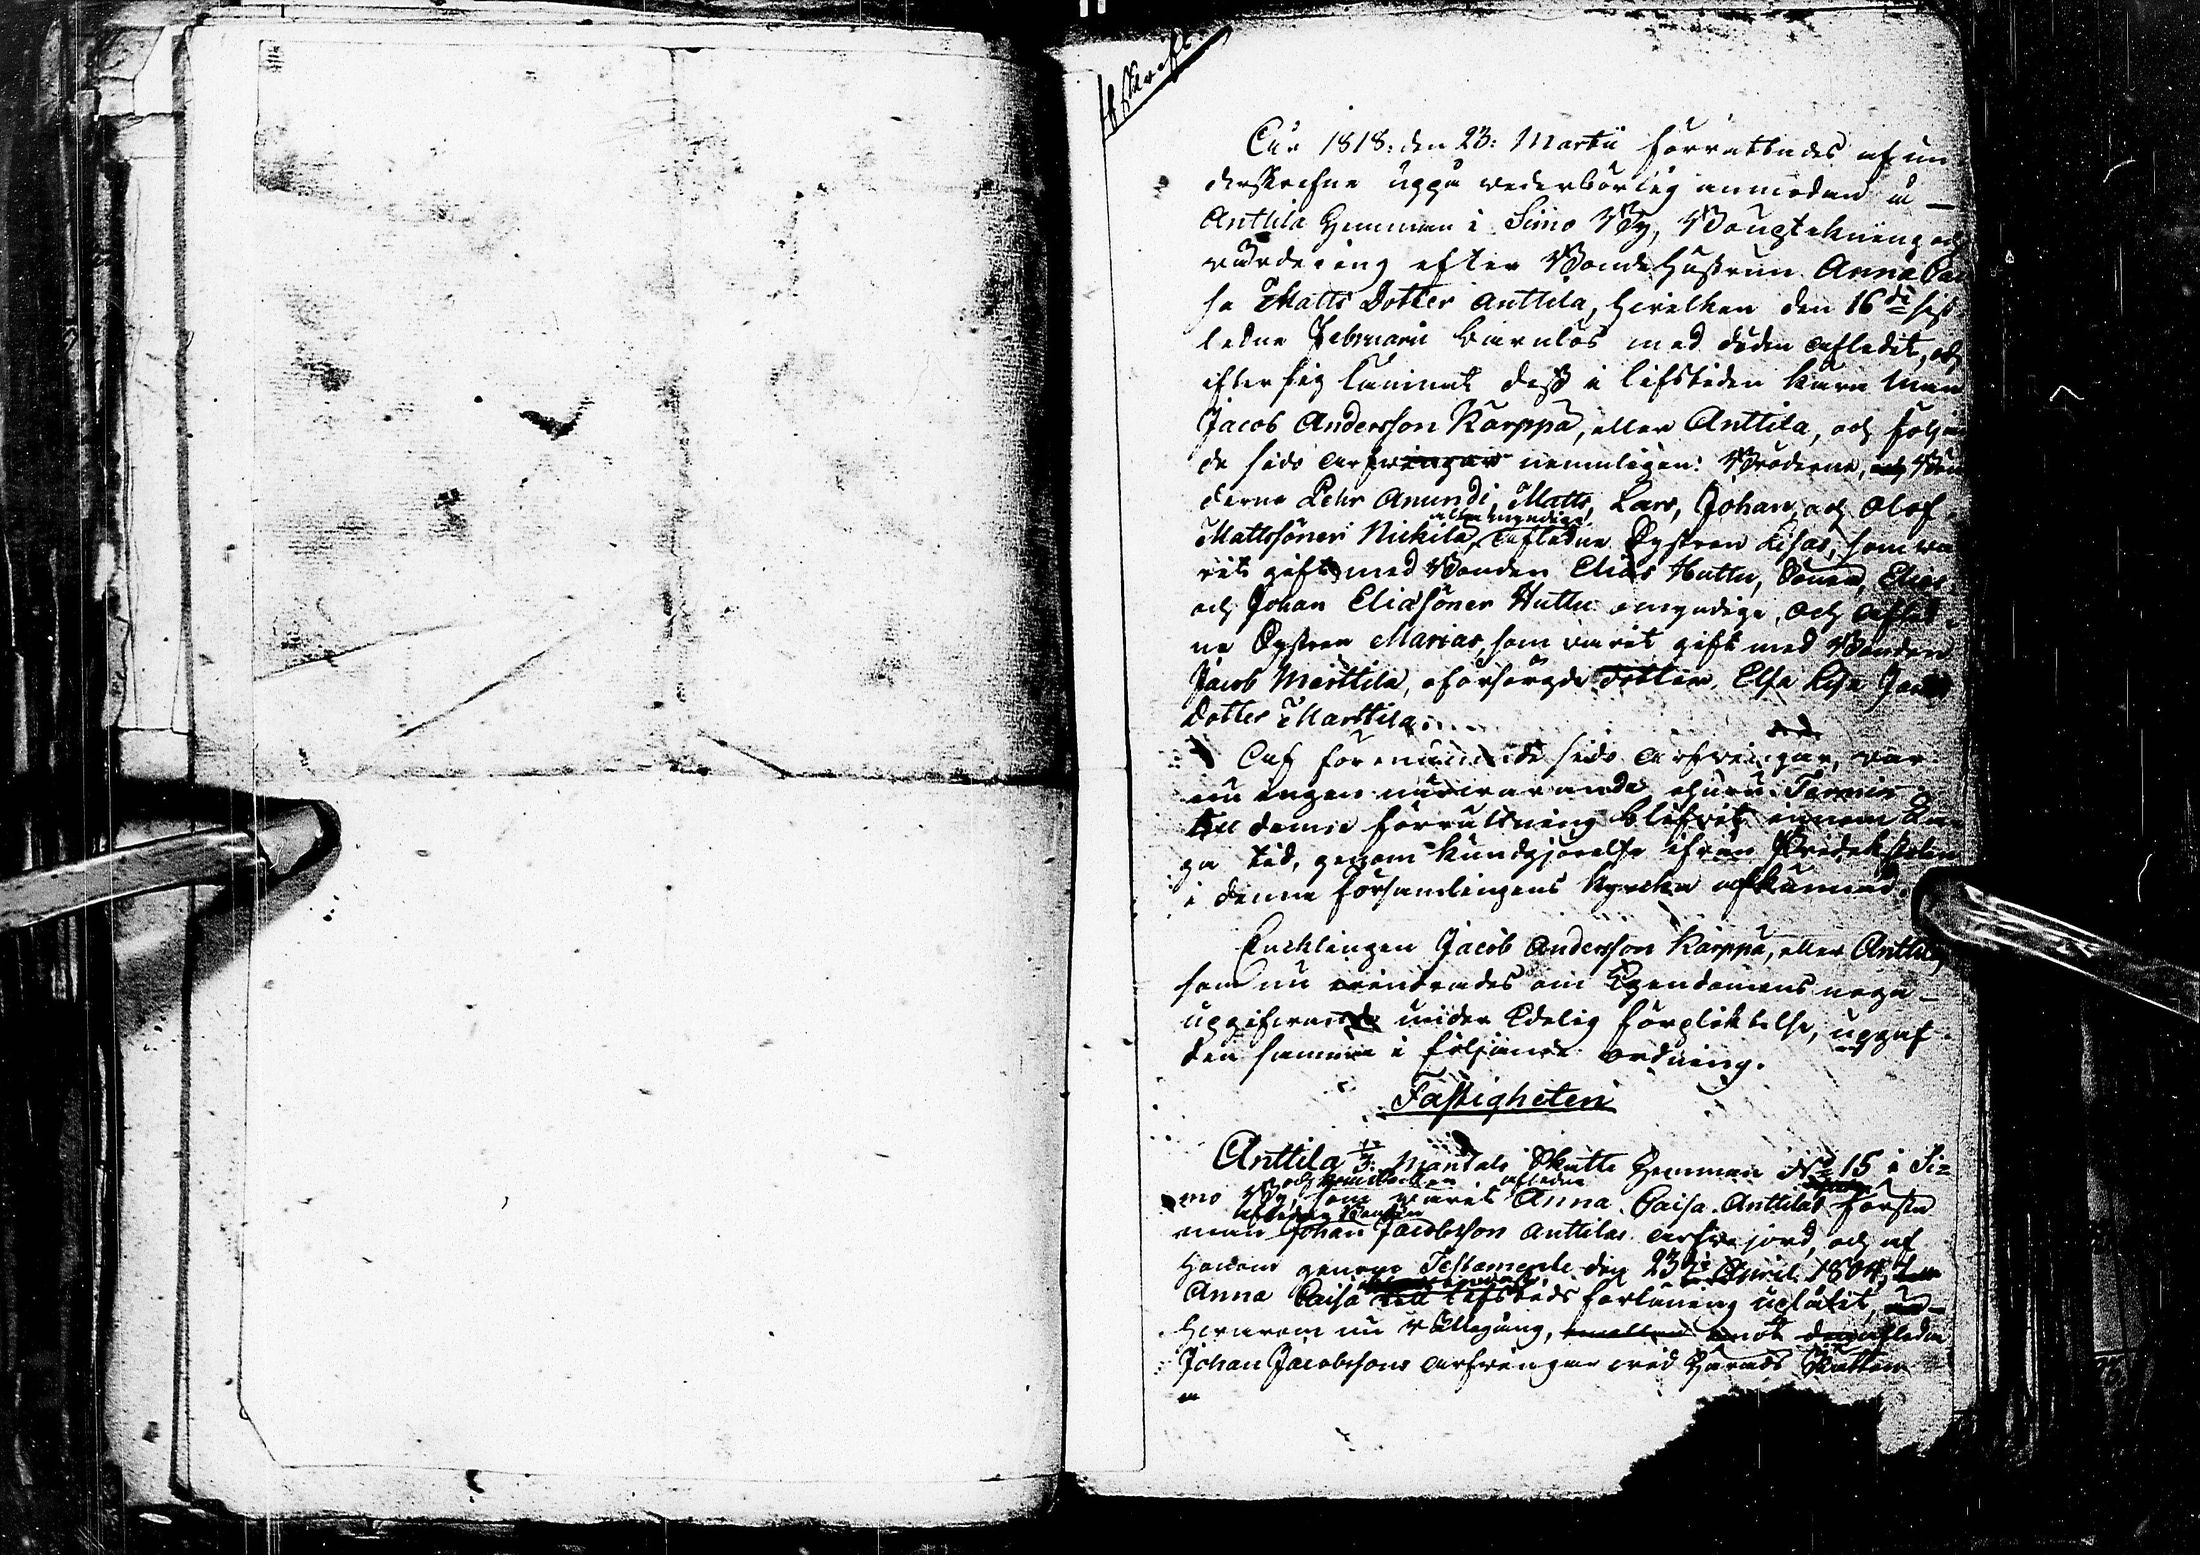 Afskrift
År 1818. den 23: Martii förrättades af un
derskrefne uppå wederbörlig anmodan å
Anttila Hemman i Simo By, Bouptekning och
värdering efter Bonde Hustrun Anna Cai
sa Matts Dotter Anttila, hvilken den 16de sist
ledne Februarii barnlös med döden afledit, och
efter sig lämnat dess i lifstiden kära Man
Jacob Andersson Karppa, eller Anttila, och följan
de sido arfwingar nemnligen: Bröderne, och Bön
derne Pehr Amundi, Matts, Lars, Johan, och Olof
alla myndige
Mattssöner Nickila, afledne Systren Lisas, som va
rit gift med Bonden Elias Huttu, Söner, Elias
och Johan Eliasöner Huttu omyndige, och afled
ne Systren Marias, som varit gift med Bonden
Jacob Marttila, oförsörgde dotter, Elsa Lisa Jacobs
dotter Marttila.
Af förenämnde sido arfwingar, var
nu ingen närwarande, ehuru Termin
till denna förrättning blifvit innom Lau
ga tid, genom kundgjörelse ifrån Predikstolen
i denna församlingens Kyrcka afkunnad.
Encklingen Jacob Andersson Karppa, eller Anttila,
som nu erindrades om Egendomens noga
upgifwande under Edelig förpliktelse, uppgaf
den samma i följande ordning.
Fastigheten
Anttila 1/3: Mantals Skatte Hemman No 15 i Si=
mo By, som varit afledne Anna Caisa Anttilas första
man Johan Jacobsson Anttilas arfwejord, och af
honom genom Testamente den 23de April 1804,
Anna Caisa till lifstids förläning uplåtit,
hvarom nu rättegång, emot aflidne
Johan Jacobssons arfwingar wid Härads Rätten